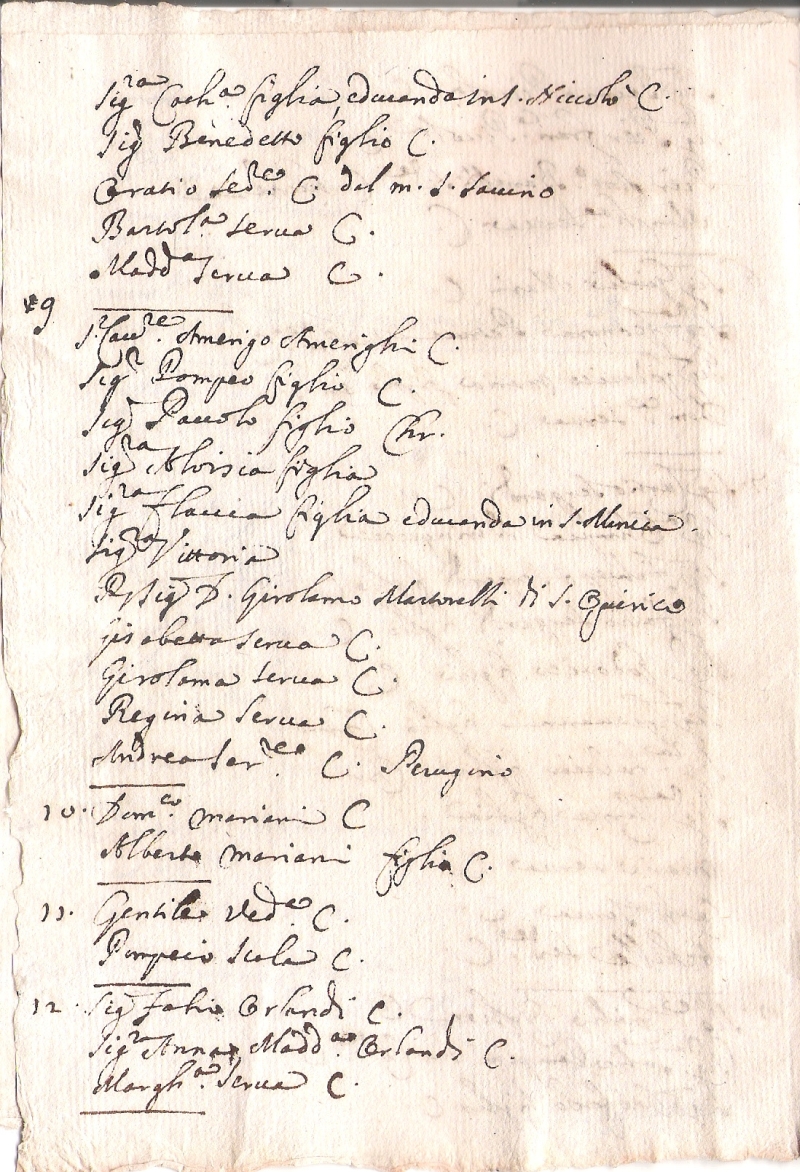 Sig.ra Cath.a figlia, educanda in S. Niccolò C.
Sig.r Benedetto figlio C.
Oratio C. del m. S. Savino
Bartol.a serva C.
Madd.a serva C.
9
S.r Cav.re Amerigo Amerighi C.
Sig.r Pompeo figlio C.
Sig.r Pavolo figlio Chr.
Sig.ra Aloisia figlia
Sig.ra Flavia figlia educanda in S. Monica.
Sig.ra Vittoria
R. Sig.r D. Girolamo Martorelli di S. Quirico
Lisabetta serva C.
Girolama serva C.
Regina serva C.
Andrea Ser.re C. Perugino
10. Dom.co mariani C
Alberto mariani figlio C.
11. Gentile Ved.a C.
Pompeio Scola C.
12. Sig.r Fabio Orlandi C.
Sig.ra Anna Madd.a Orlandi C.
Margh.a serva C.